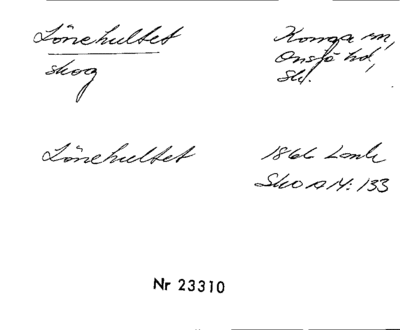 Lönehultet Konga sn,
skog Onsjö hd,
Sk.
Lönehultet 1866 Lantm
Sko A 14:133
Nr 23310